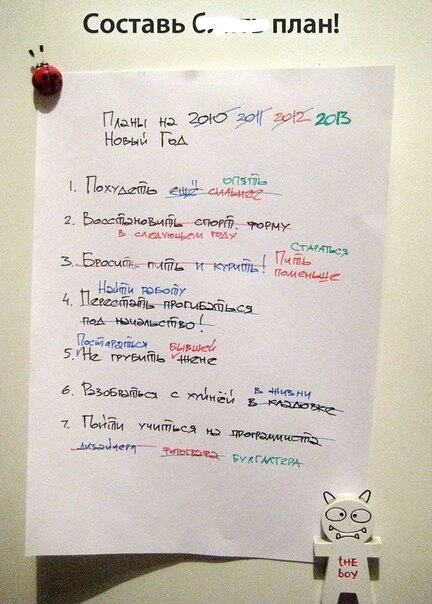 Составь С план!
Планы на 2010 2011 2012 2013
Новый Год
опять
1. Похудеть ещё сильнее
2. Восстановить спорт. форму
в следующем году
Стараться
3. Бросить пить и курить! Пить
поменьше
Найти работу
4. Перестать прогибаться
под начальство!
Постараться бывшей
5. Не грубить жене
6. Разобраться с хуйнёй в жизни
в кладовке
7. Пойти учиться на программиста
дизайнера фотографа бухгалтера
the
boy